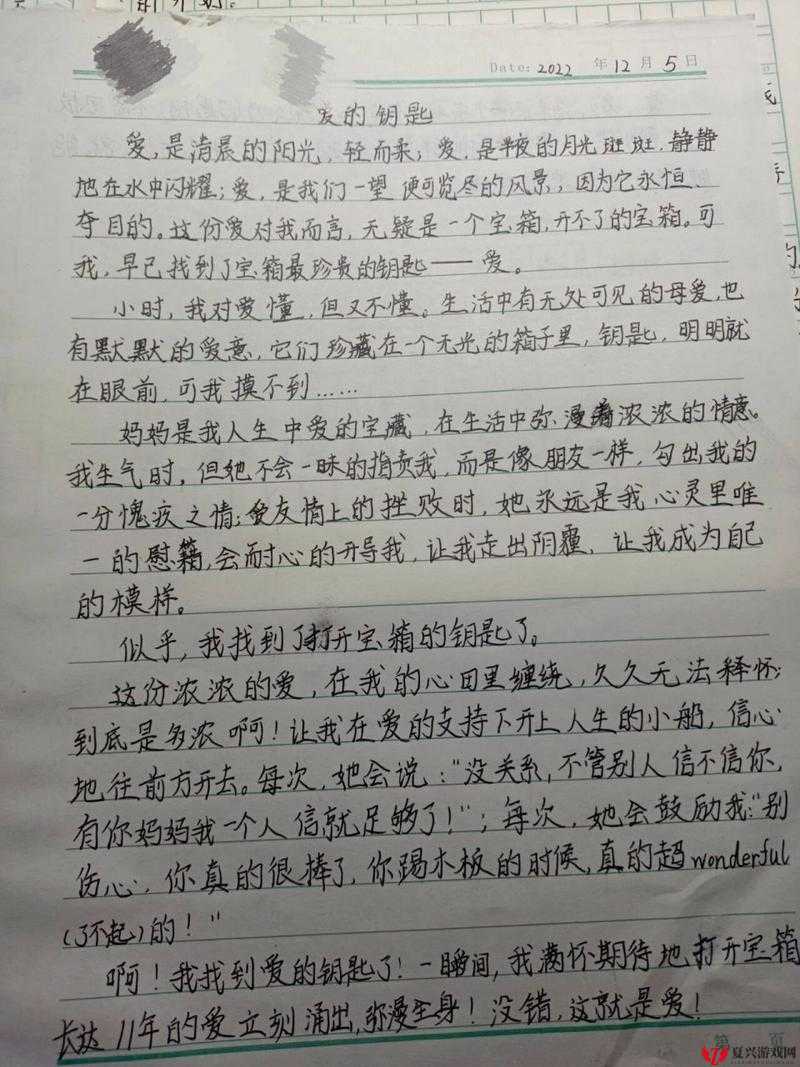 Date: 2022 年 12 月 5 日
爱的钥匙
爱,是清晨的阳光,轻而柔;爱,是半夜的月光斑斑,静静
地在水中闪耀;爱,是我们一望便可览尽的风景,因为它永恒、
夺目的。这份爱对我而言,无疑是一个宝箱,开不了的宝箱。可
我,早已找到了宝箱最珍贵的钥匙——爱。
小时,我对爱懂,但又不懂。生活中有无处可见的母爱,也
有默默的爱意,它们珍藏在一个无光的箱子里,钥匙,明明就
在眼前,可我摸不到……
妈妈是我人生中爱的宝藏,在生活中弥漫着浓浓的情意。
我生气时,但她不会一昧的指责我,而是像朋友一样,勾出我的
一分愧疚之情;受友情上的挫败时,她永远是我心灵里唯
一的慰籍,会耐心的开导我,让我走出阴霾、让我成为自己
的模样。
似乎,我找到了打开宝箱的钥匙了。
这份浓浓的爱,在我的心田里缠绕,久久无法释怀;
到底是多浓啊!让我在爱的支持下开上人生的小船,信心
地往前方开去。每次,她会说:“没关系,不管别人信不信你,
有你妈妈我一个人信就足够了!”;每次,她会鼓励我:“别
伤心,你真的很棒了,你踢木板的时候,真的超wonderful
(了不起)的!”
啊!我找到爱的钥匙了!一瞬间,我满怀期待地打开宝箱
长达11年的爱立刻涌出,弥漫全身!没错,这就是爱!
第 页
夏兴游戏网